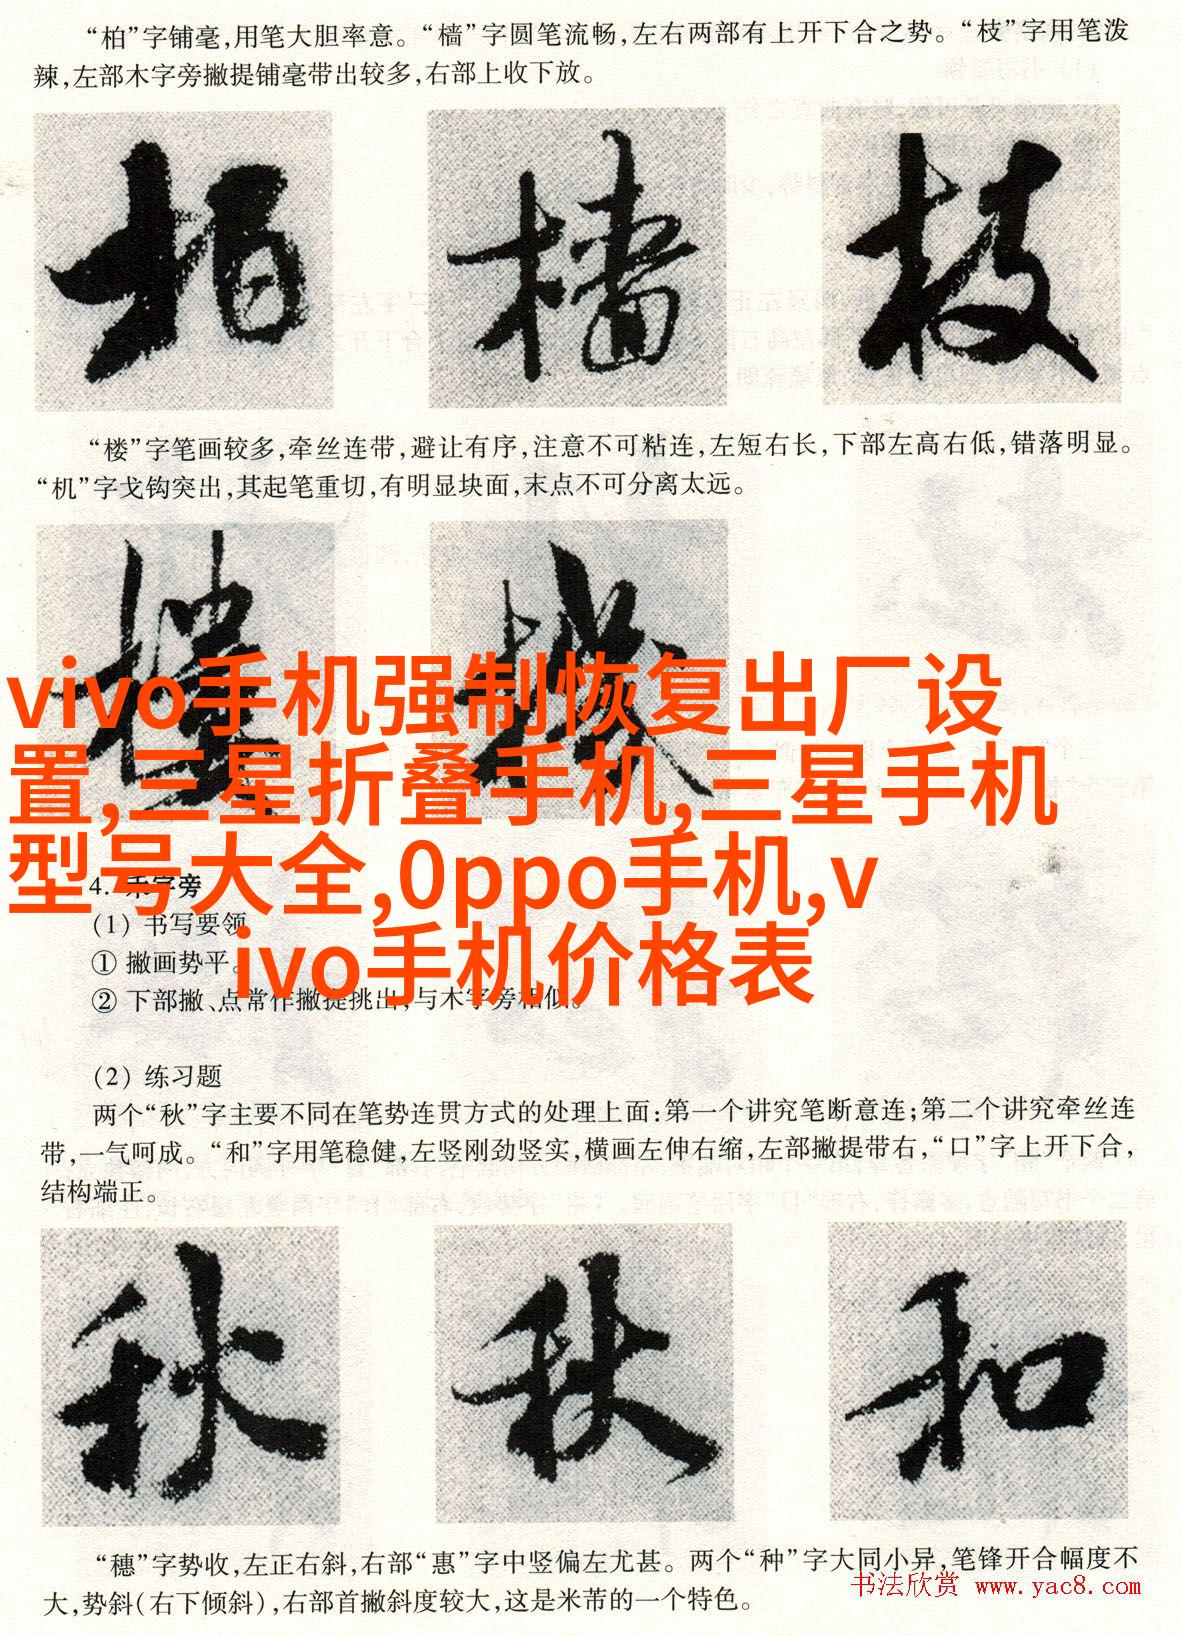 “柏”字铺毫,用笔大胆率意。“樯”字圆笔流畅,左右两部有上开下合之势。“枝”字用笔泼
辣,左部木字旁撇提铺毫带出较多,右部上收下放。
柏 樯 枝
“楼”字笔画较多,牵丝连带,避让有序,注意不可粘连,左短右长,下部左高右低,错落明显。
“机”字戈钩突出,其起笔重切,有明显块面,末点不可分离太远。
樓 機
vivo手机强制恢复出厂设
置,三星折叠手机,三星手机
型号大全,0ppo手机,v
ivo手机价格表
4. 禾字旁
(1) 书写要领
① 撇画势平。
② 下部撇、点常作撇提挑出,与木字旁相似。
(2) 练习题
两个“秋”字主要不同在笔势连贯方式的处理上面:第一个讲究笔断意连;第二个讲究牵丝连
带,一气呵成。“和”字用笔稳健,左竖刚劲竖实,横画左伸右缩,左部撇提带右,“口”字上开下合,
结构端正。
秋 秋 和
“穗”字势收,左正右斜,右部“惠”字中竖偏左尤甚。两个“种”字大同小异,笔锋开合幅度不
大,势斜(右下倾斜),右部首撇斜度较大,这是米芾的一个特色。
书法欣赏 www.yac8.com